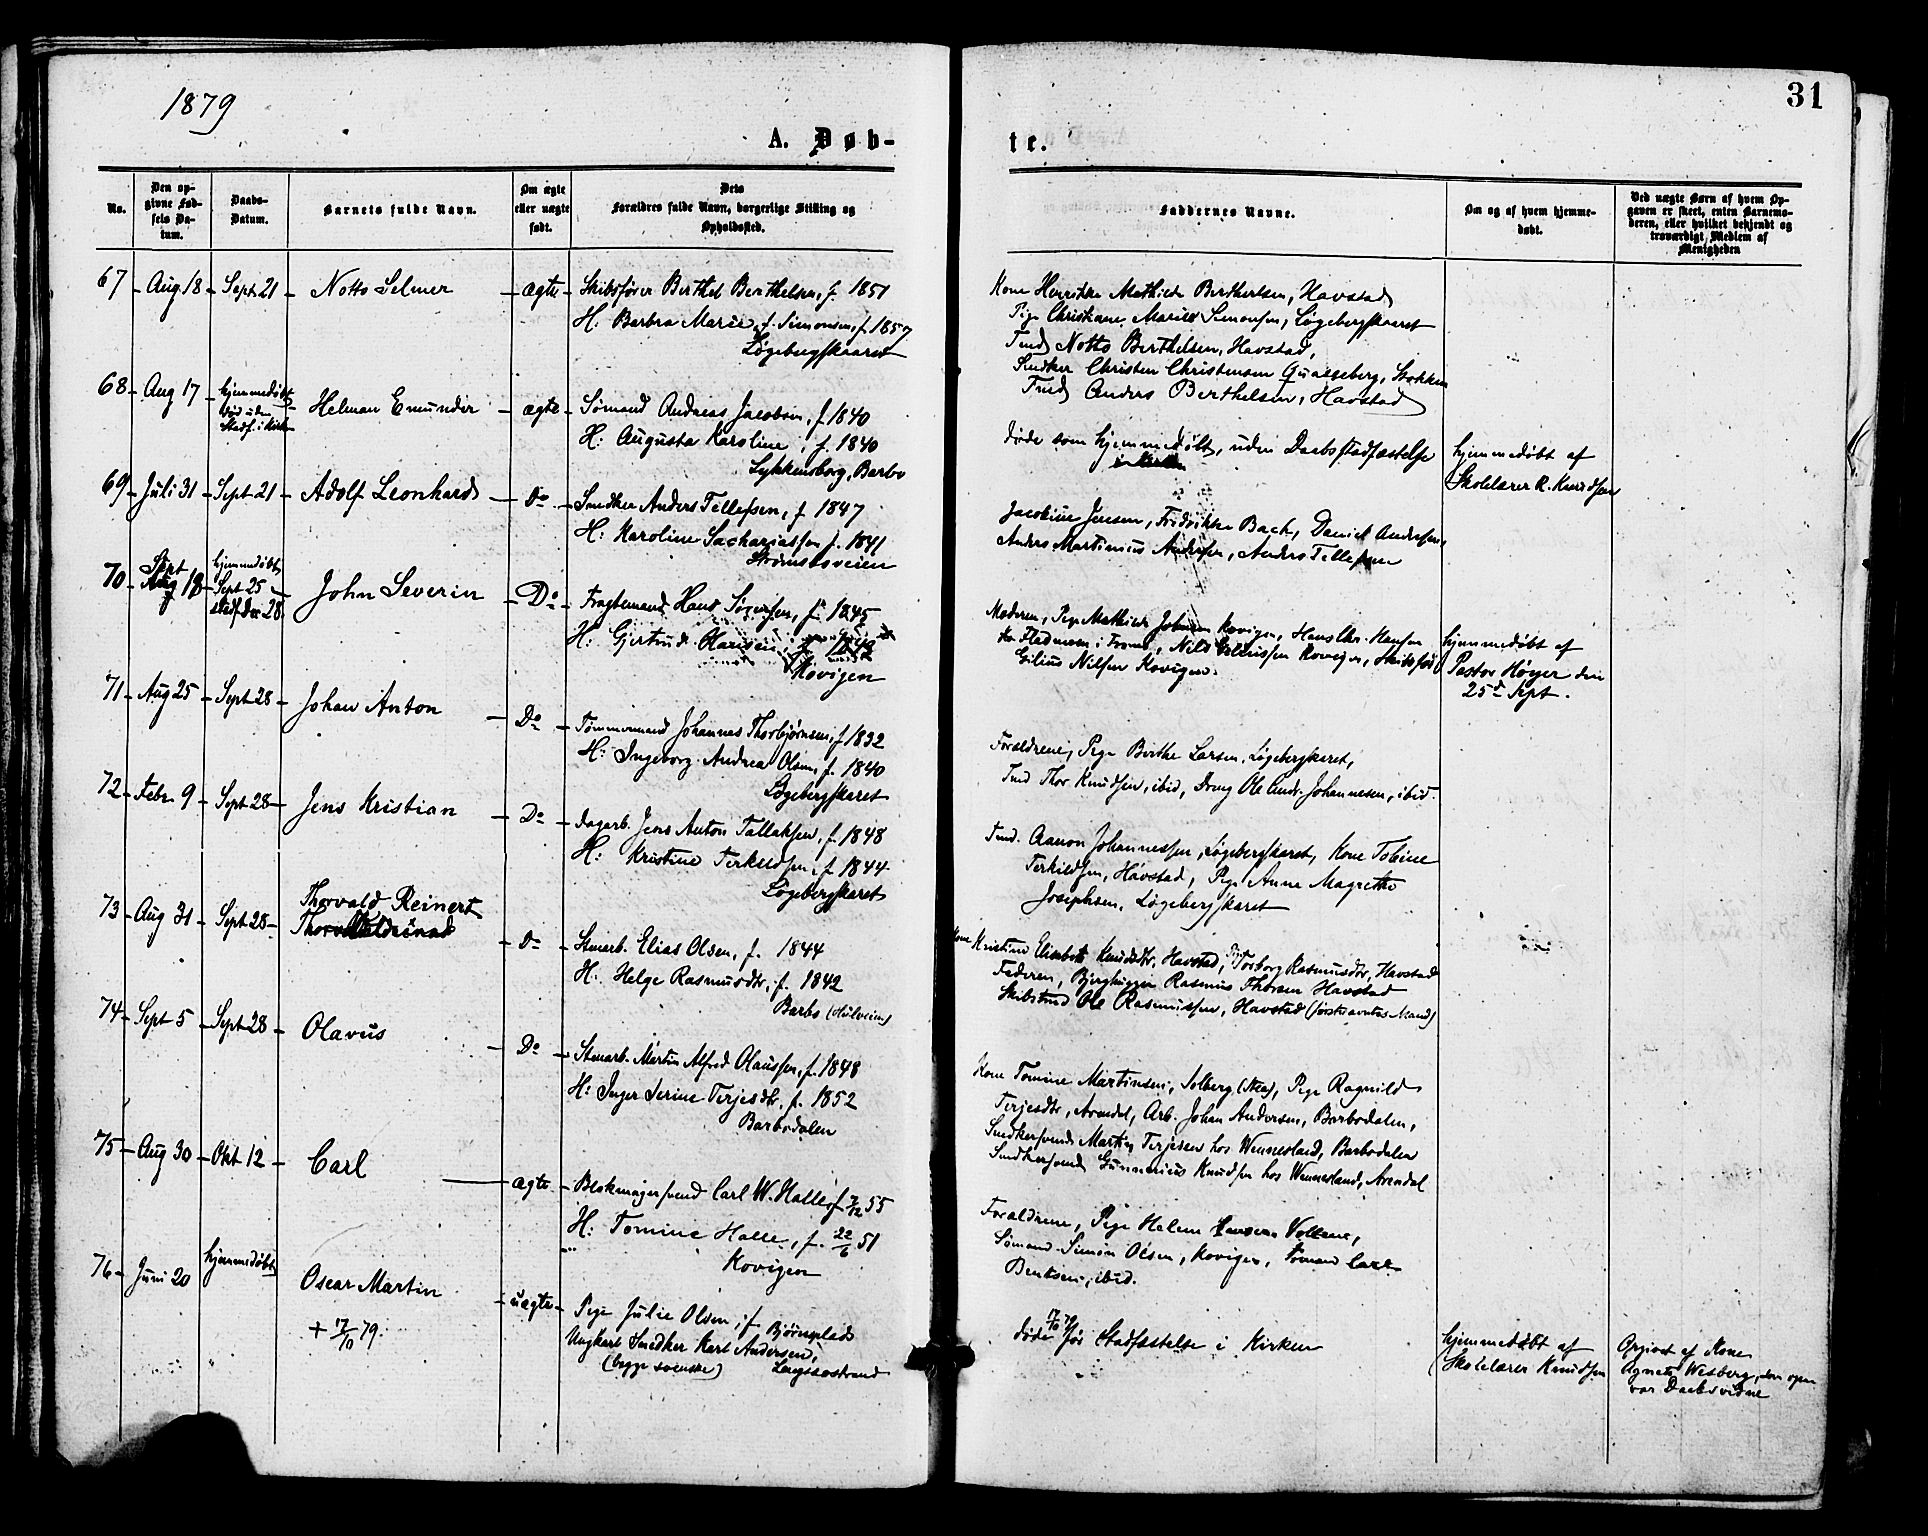 1879
31
A. Døb-
te.
No.
Den op-
givne Fød-
sels Da-
tum.
Daabs-
Datum.
Barnets fulde Navn.
Om ægte
eller uægte
født.
Dets
Forældres fulde Navn, borgerlige Stilling og
Opholdssted.
Faddernes Navne.
Om og af hvem hjemme-
døbt.
Ved uægte Børn af hvem Op-
gaven er skeet, enten Barnemo-
deren, eller hvilket bekjendt og
troværdigt Medlem af
Menigheden
67 Aug 18 Sept 21 Notto Selmer ægte Skibsfører Berthel Berthelsen, f. 1851
H: Barbra Marie, f. Simonsen, f. 1857
Løgebergskaaret
Kone Henrikke Mathilde Berthelsen, Havstad
Pige Christiane Marie Simonsen, Løgebergskaaret
Tmd Notto Berthelsen, Havstad,
Snedker Christen Christensen Qualeberg, Stokken
Tmd Anders Berthelsen, Havstad
68 Aug 17 hjemmedøbt
død uden
Stadf. i Kirken
Helman Emunder ægte Sømand Andreas Jacobsen, f. 1840
H: Augusta Karoline, f. 1840
Lykkensborg, Barbo
døde som hjemmedøbt, uden Daabsstadfæstelse
hjemmedøbt af
Skolelærer R. Knudsen
69 Juli 31 Sept 21 Adolf Leonhard Do Snedker Anders Tellefsen, f. 1847
H: Karoline Sachariassen f. 1841
Strømsbsveien
Jacobine Jensen, Fredrikke Bach, Daniel Andersen,
Anders Martinius Andersen, Anders Tellefsen
70 Sept
Aug 18 hjemmedøbt
Sept 25
stadf. Dec 28
John Severin Do Fragtemand Hans Sørensen, f. 1845
H: Gjertrud Olarisen, f. 1842
Kovigen
Moderen, Pige Mathilde Johnsen Kovigen, Hans Chr. Hansen
Flademoen i Froms, Nils Gilliussen Kovigen, Skibsfør
Gilius Nilsen Kovigen.
hjemmedøbt af
Pastor Høyer den
25d Sept.
71 Aug 25 Sept 28 Johan Anton Do Tømmermand Johannes Thorbjørnsen, f. 1832
H: Ingeborg Andrea Olsen, f. 1840
Løgebergskaret
Forældrene, Pige Berthe Larsen, Løgebergskaret,
Tmd Thor Knudsen, ibid, Dreng Ole Andr. Johannesen, ibid.
72 Febr. 9 Sept 28 Jens Kristian Do Dagarb. Jens Anton Tallaksen, f. 1848
H: Kristine Terkildsen, f. 1844
Løgebergskaret
Tmd. Aanon Johannessen, Løgebergskaret, Kone Tobine
Terkildsen, Havstad, Pige Anne Magrethe
Josephsen, Løgebergskaret
73 Aug 31 Sept 28 Thorvald Reinert
Do Stenarb. Elias Olsen, f. 1844
H: Helge Rasmusdtr, f. 1842
Barbo (Hulveien)
Kone Kristine Elisabeth Knudsdtr, Havstad, Pige Torborg Rasmusdtr, Havstad
Faderen, Bjergbygger Rasmus Thorsen Havstad
Skibstmd Ole Rasmussen, Havstad (førstnævntes Mand)
74 Sept 5 Sept 28 Olavus Do Stenarb. Martin Alfred Olaussen, f. 1848
H: Inger Serine Terjesdtr, f. 1852
Barbodalen
Kone Tomine Martinsen, Solberg, Pige Ragnild
Terjesdtr, Arendal, Arb. Johan Andersen, Barbodalen,
Snedkersvend Martin Terjesen hos Wennesland, Barbodalen
Snedkersvend Gunnerius Knudsen hos Wennesland, Arendal
75 Aug 30 Okt 12 Carl ægte Blokmagersvend Carl W. Halle, f. 7/12 55
H: Tomine Halle, f. 22/6 51
Kovigen
Forældrene, Pige Helene Vollene,
Sømand Simon Olsen, Kovigen, Sømand Carl
Bentsen, ibid.
76 Juni 20 hjemmedøbt Oscar Martin
+ 17/10 79.
uægte Pige Julie Olsen, f. Bjørneplads
Ungkarl Snedker Karl Andersen,
(begge svenske) Langsæstrand
døde 17/10 79 før Stadfæstelse i Kirken
hjemmedøbt af
Skolelærer Knudsen
Opgivet af Kone
Agnete Wesberg, den ogsaa
var Daabsvidne